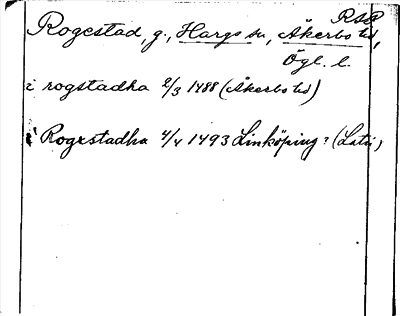 RAP
Rogestad, g., Hargs sn, Åkerbo hd,
Ögl. l.
i rogstadha 2/3 1488 (Åkerbo hd)
i Rogestadha 4/4 1493 Linköping? (Latin)